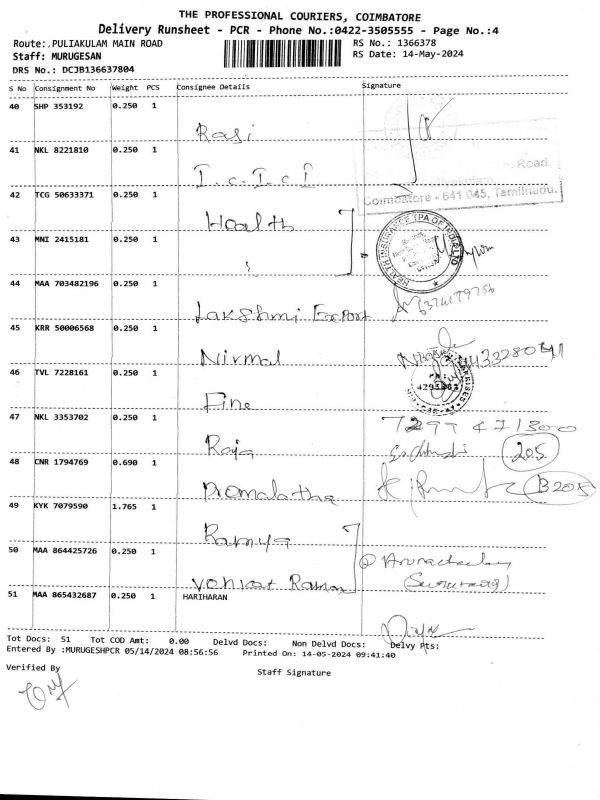 THE PROFESSIONAL COURIERS, COIMBATORE
Delivery Runsheet - PCR - Phone No.:0422-3505555 - Page No.:4
Route:.PULIAKULAM MAIN ROAD RS No.: 1366378
Staff: MURUGESAN RS Date: 14-May-2024
DRS No.: DCJB136637804
S No Consignment No Weight PCS Consignee Details Signature
40 SHP 353192 0.250 1
Rasi
41 NKL 8221810 0.250 1
Road
I.c.I.c I
Coimbatore - 641 045, Tamilnadu.
42 TCG 50633371 0.250 1
Health
HEALTH INSURANCE TPA OF INDIA LTD
43 MNI 2415181 0.250 1
44 MAA 703482196 0.250 1
Lakshmi Export
45 KRR 50006568 0.250 1
Nirmal
46 TVL 7228161 0.250 1
Fine
47 NKL 3353702 0.250 1
7299471300
Raja 205
48 CNR 1794769 0.690 1
Premalatha B205
49 KYK 7079590 1.765 1
Ramya
50 MAA 864425726 0.250 1
Venkat Raman
51 MAA 865432687 0.250 1 HARIHARAN
Tot Docs: 51 Tot COD Amt: 0.00 Delvd Docs: Non Delvd Docs: Delvy Pts:
Entered By :MURUGESHPCR 05/14/2024 08:56:56 Printed On: 14-05-2024 09:41:40
Verified By Staff Signature